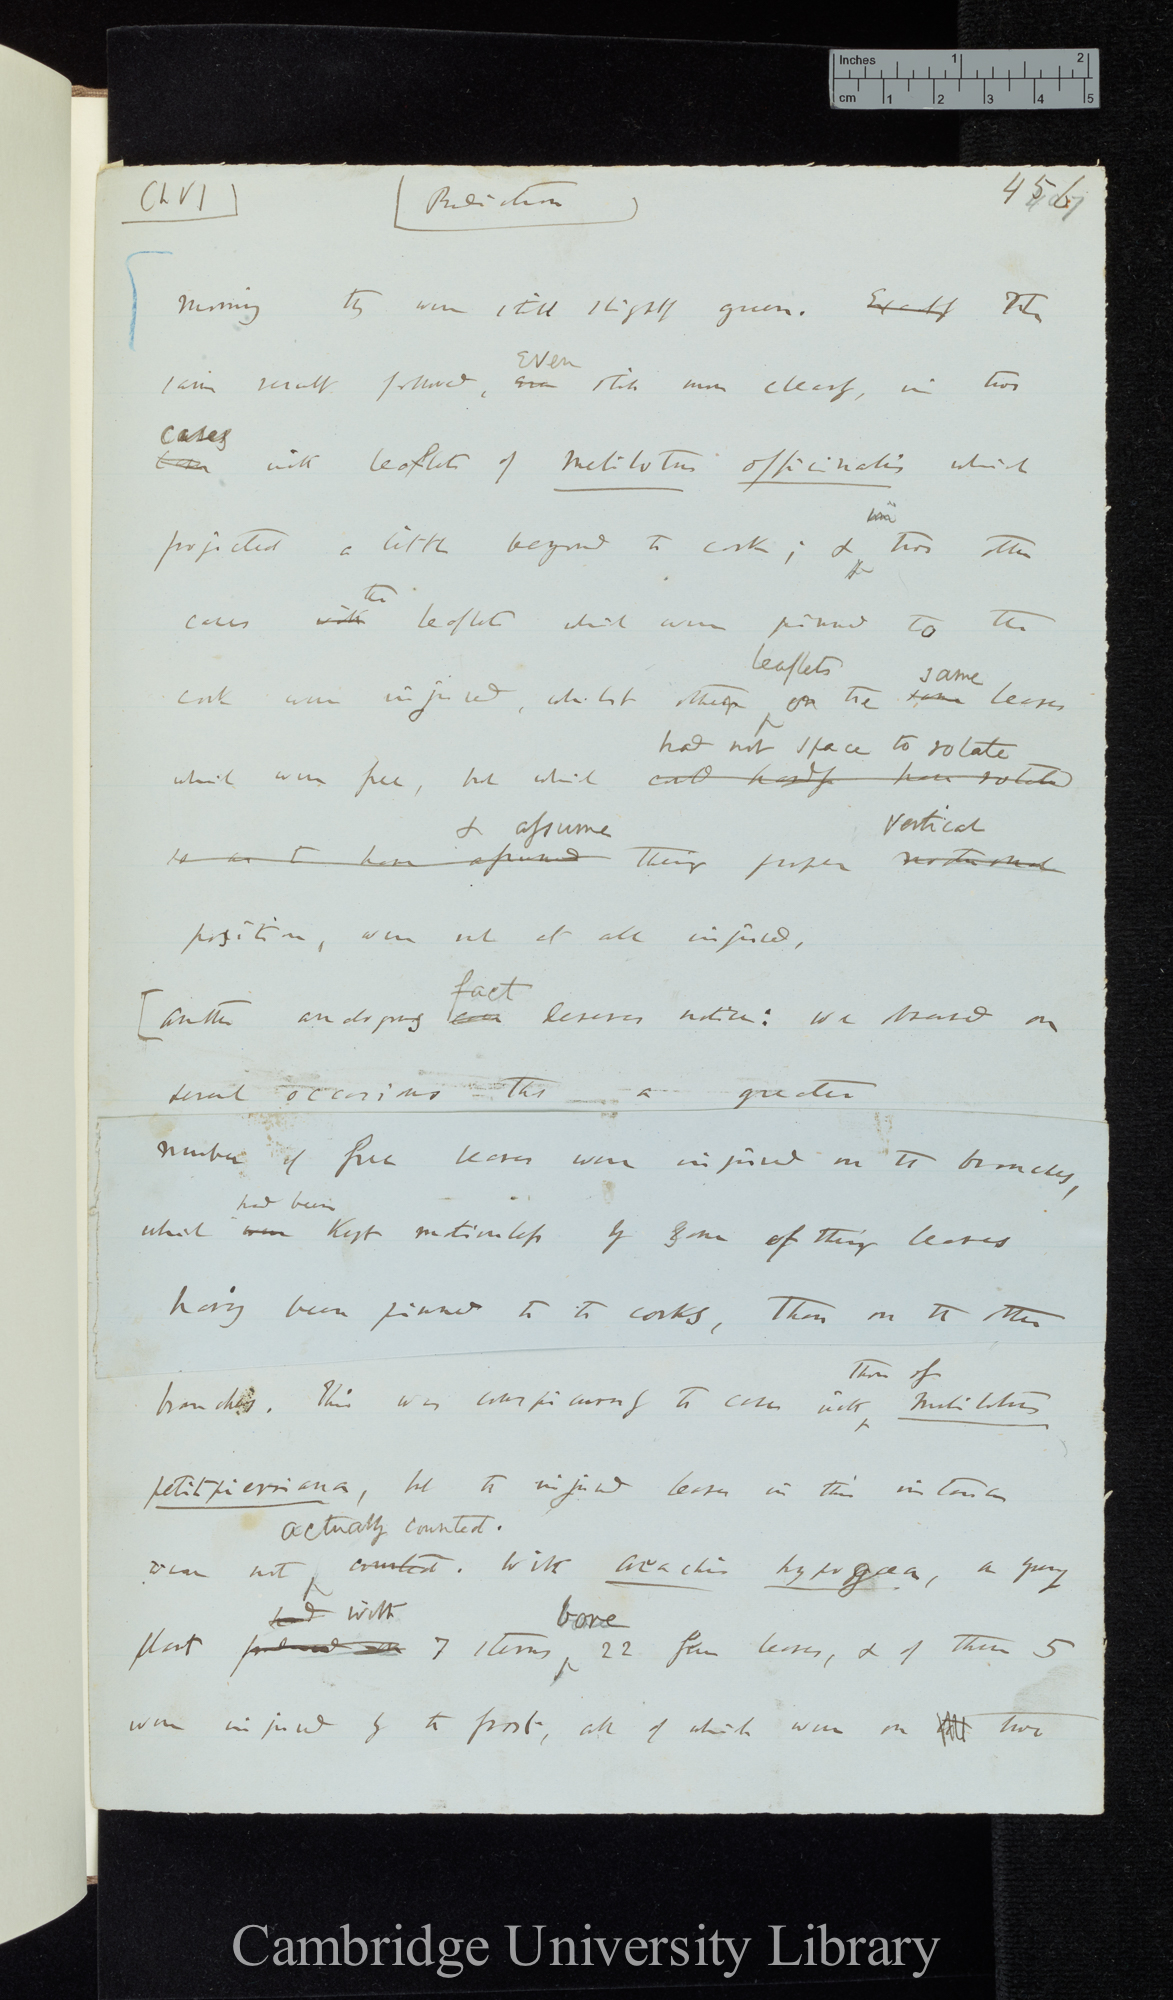 Inches 1 2
cm 1 2 3 4 5
Ch VI
Radiation
456
morning they were still slightly green. Exactly The
even
same result followed, even still more clearly, in two
cases
with leaflets of Melilotus officinalis which
projected a little beyond the cork; & in two other
the
cases with leaflets which were pinned to the
leaflets same
cork were injured, whilst other on the same leaves
had not space to rotate
which were free, but which could hardly have rotated
& assume vertical
so as to have assumed their proper nocturnal
position, were not at all injured.
[Another analogous fact
case deserves notice: we observed on
several occasions that a greater
number of free leaves were injured on the branches,
had been
which were kept motionless by some of their leaves
having been pinned to the corks, than on the other
those of
branches. This was conspicuously the case with Melilotus
petitpierriana, but the injured leaves in this instance
actually counted.
were not counted. With Arachis hypogaea, a young
had with bore
plant produced 7 stems 22 free leaves, & of these 5
were injured by the frost, all of which were on two
Cambridge University Library